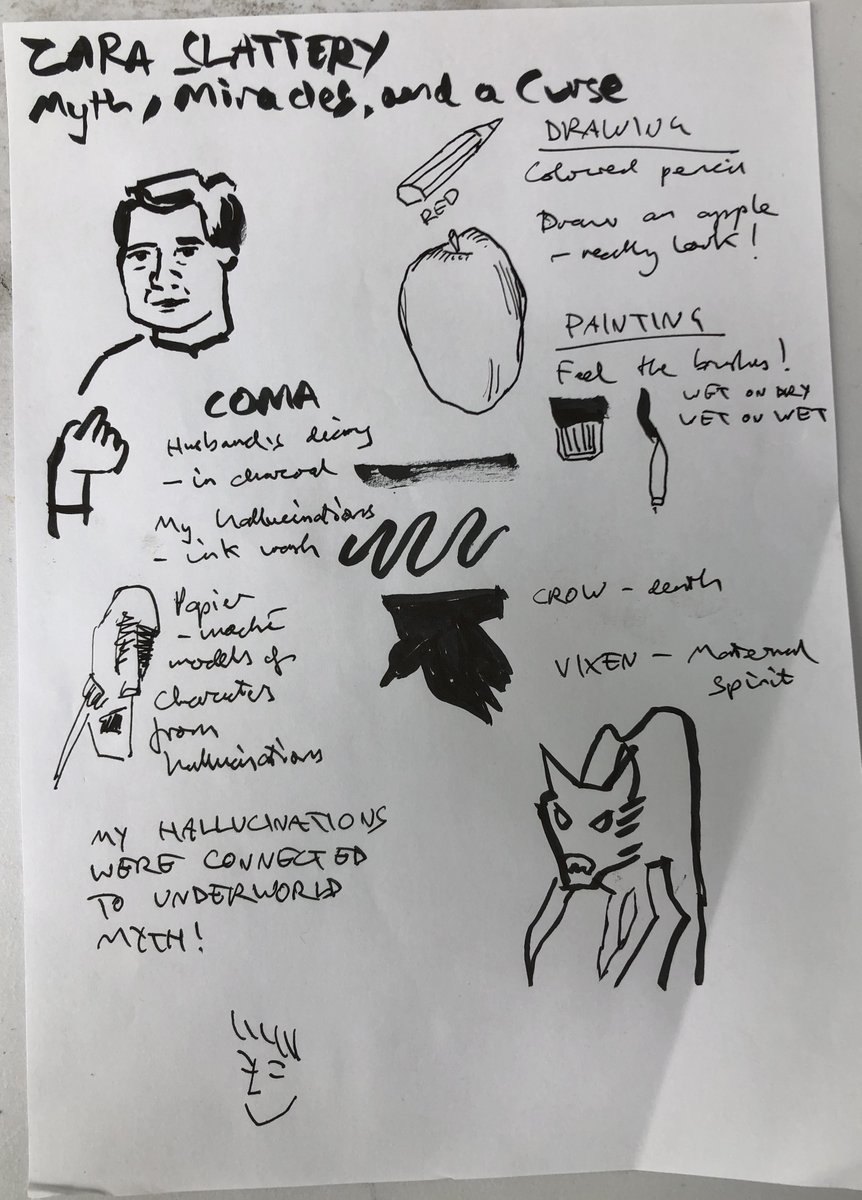 ZARA SLATTERY
Myth, Miracles, and a Curse
DRAWING
Colored pencil
RED
Draw an apple
- really look!
PAINTING
Feel the brushes!
WET ON DRY
WET ON WET
COMA
Husband's diary
- in charcoal
My hallucinations
- ink wash
Papier
-maché
models of
characters
from
hallucinations
CROW - death
VIXEN - Maternal
Spirit
MY HALLUCINATIONS
WERE CONNECTED
TO UNDERWORLD
MYTH!